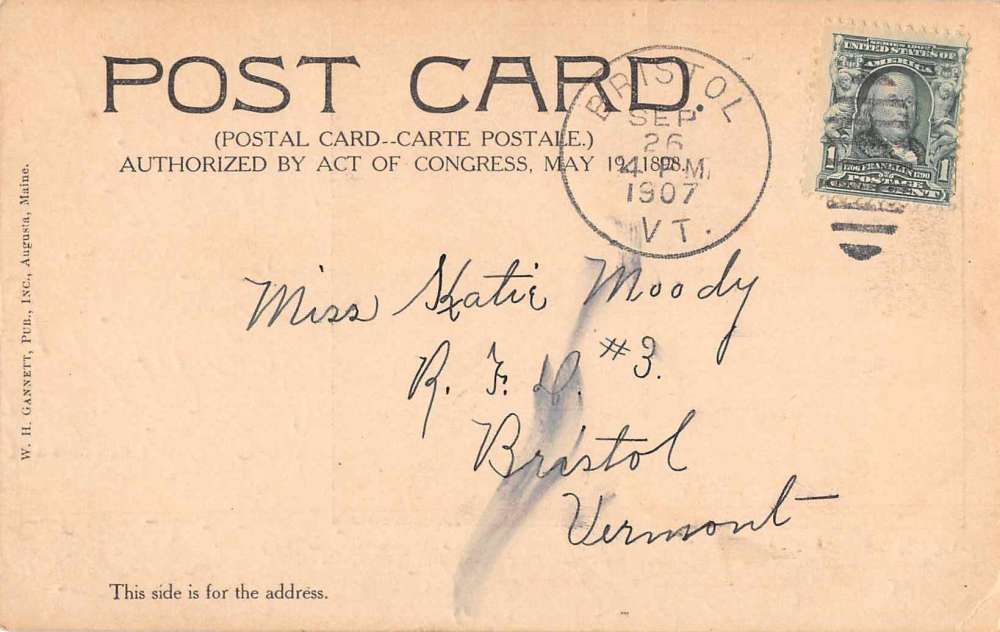 POST CARD.
(POSTAL CARD--CARTE POSTALE.)
AUTHORIZED BY ACT OF CONGRESS, MAY 19, 1898.
BRISTOL
SEP
26
4 PM
1907
VT.
SERIES 1902
UNITED STATES OF
AMERICA
1706 FRANKLIN 1790
1 POSTAGE 1
ONE CENT
W. H. GANNETT, PUB., INC., Augusta, Maine.
Miss Katie Moody
R. F. D. #3.
Bristol
Vermont
This side is for the address.